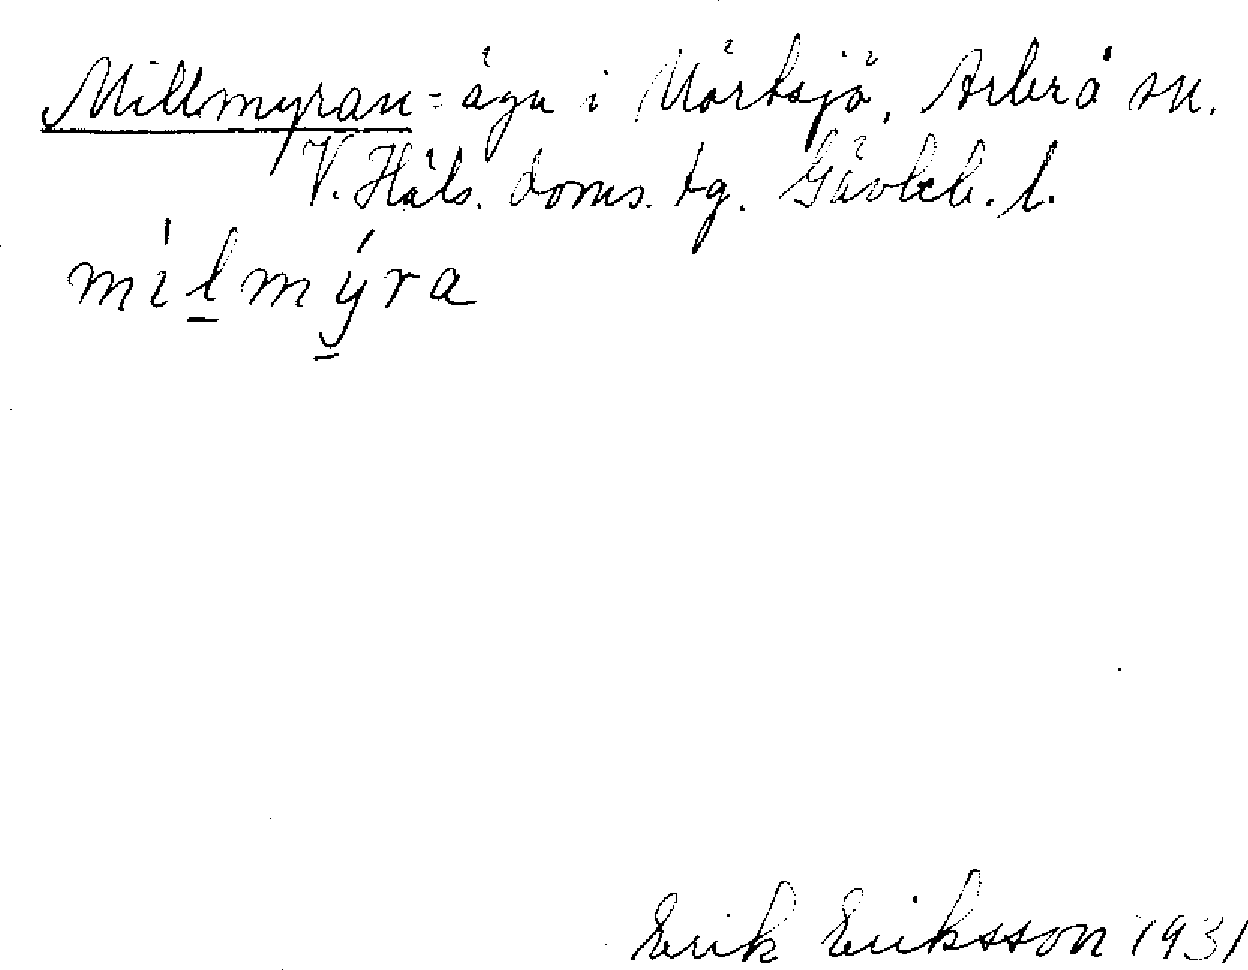 Millmyran = ägn i Mörtsjö, Arbrå sn.
V. Häls. doms. tg. Gävleb. l.
mìlmýra
Erik Eriksson 1931